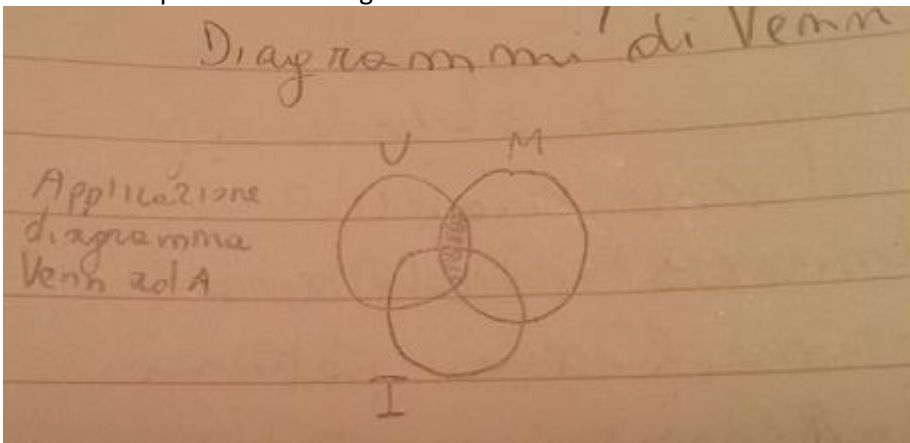 Diagrammi di Venn
U M
Applicazione
diagramma
Venn ad A
I